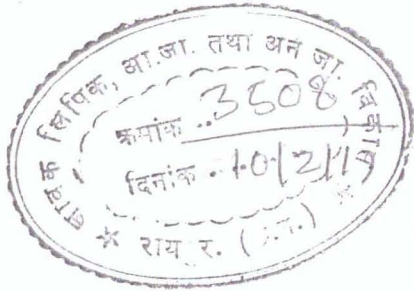 आवक लिपिक, आ.जा. तथा अन जा. विकास
क्रमांक ..
दिनांक . 10/2/19
राय र. ( .ग.)